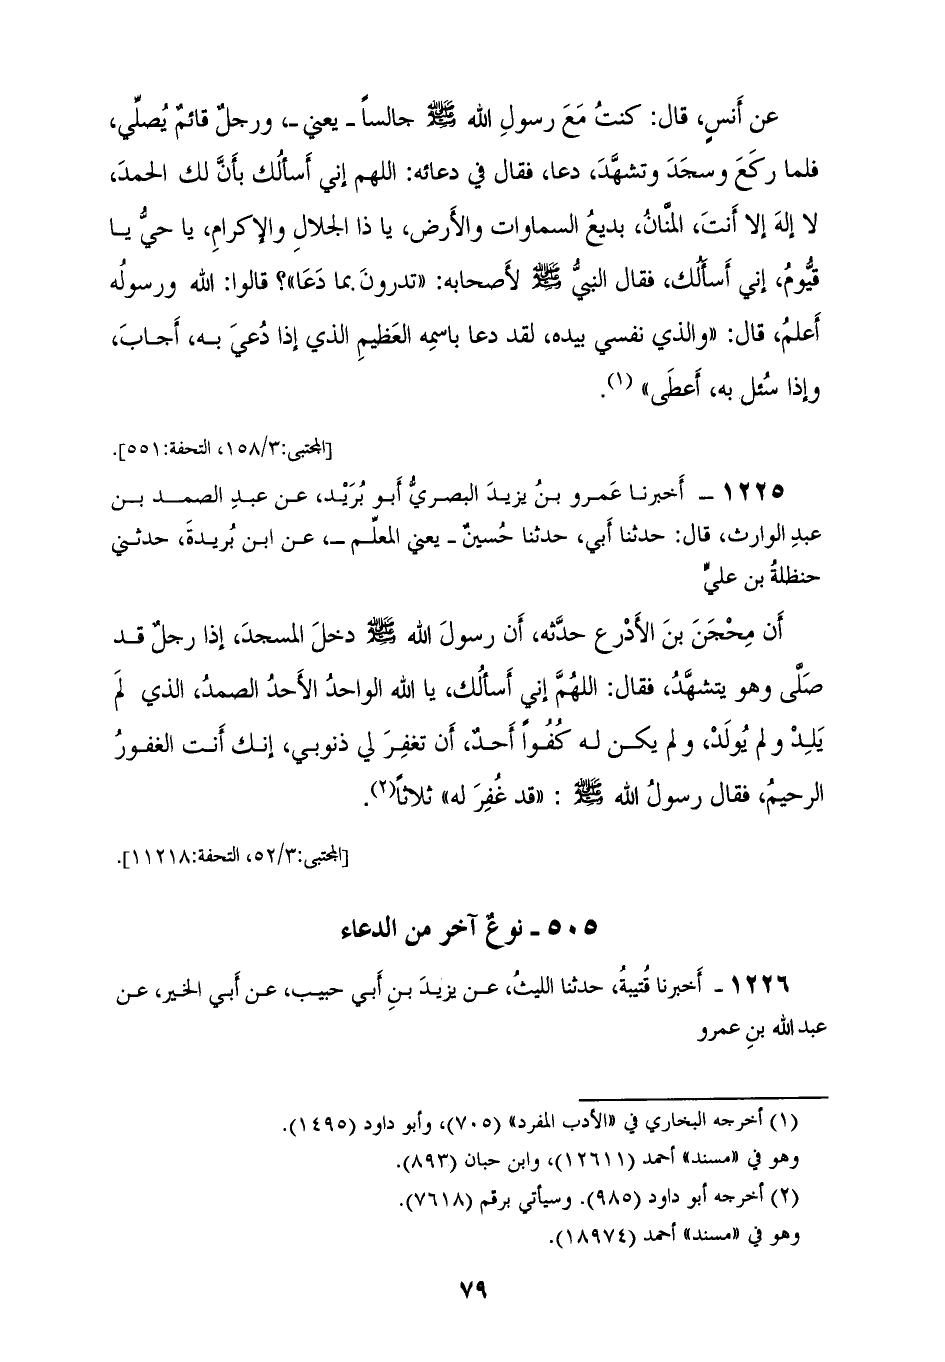 عن أَنسٍ، قال: كنتُ مَعَ رسولِ الله ﷺ جالساً ـ يعني ـ، ورجلٌ قائمٌ يُصلِّي،
فلما ركَعَ وسجَدَ وتشهَّدَ، دعا، فقال في دعائه: اللهم إني أَسأَلُك بأَنَّ لك الحمدَ،
لا إلهَ إلا أَنتَ، المَنَّانُ، بديعُ السماوات والأَرض، يا ذا الجلالِ والإكرامِ، يا حيُّ يا
قيُّومُ، إني أَسأَلُك، فقال النبيُّ ﷺ لأَصحابه: «تدرونَ بما دَعَا»؟ قالوا: الله ورسولُه
أَعلمُ، قال: «والذي نفسي بيده، لقد دعا باسمِه العَظيمِ الذي إذا دُعيَ به، أَجابَ،
وإذا سُئل به، أَعطَى» (١).
[المجتبى: ١٥٨/٣، التحفة: ٥٥١].
١٢٢٥ ـ أَخبرنا عَمرو بنُ يزيدَ البصريُّ أَبو بُرَيْد، عن عبدِ الصمد بن
عبدِ الوارث، قال: حدثنا أَبي، حدثنا حُسينٌ ـ يعني المعلِّم ـ، عن ابن بُريدةَ، حدثني
حنظلةُ بن عليٍّ
أَن مِحْجَنَ بنَ الأَدْرع حدَّثه، أَن رسولَ الله ﷺ دخلَ المسجدَ، إذا رجلٌ قد
صَلَّى وهو يتشهَّدُ، فقال: اللهُمَّ إني أَسأَلُك، يا الله الواحدُ الأَحدُ الصمدُ، الذي لَم
يَلِدْ ولم يُولَدْ، ولم يكن له كُفُواً أَحدٌ، أَن تغفِرَ لي ذنوبي، إنك أَنت الغفورُ
الرحيمُ، فقال رسولُ الله ﷺ : «قد غُفِرَ له» ثلاثاً(٢).
[المجتبى: ٥٢/٣، التحفة: ١١٢١٨].
٥٠٥ ـ نوعٌ آخر من الدعاء
١٢٢٦ ـ أَخبرنا قُتيبةُ، حدثنا الليثُ، عن يزيدَ بنِ أَبي حبيب، عن أَبي الخير، عن
عبد الله بنِ عمرو
(١) أخرجه البخاري في «الأدب المفرد» (٧٠٥)، وأبو داود (١٤٩٥).
وهو في «مسند» أحمد (١٢٦١١)، وابن حبان (٨٩٣).
(٢) أخرجه أبو داود (٩٨٥). وسيأتي برقم (٧٦١٨).
وهو في «مسند» أحمد (١٨٩٧٤).
٧٩